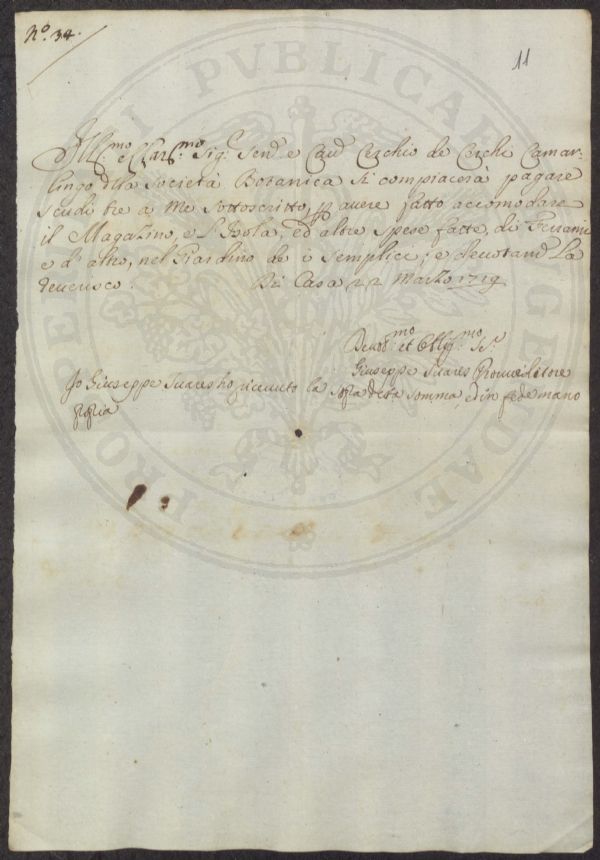 Nº. 34.
11
Ill.mo e Clar.mo Sig.r Sen.e e Cav.e Cerchio de Cerchi Camar-
lingo d.lla Società Botanica si compiacerà pagare
scudi tre a Me sottoscritto, p avere fatto accomodare
il Magazino, e L'Isola, ed altre spese fatte, di
e d'altro, nel Giardino de i semplici; e devotam.e La
reverisco. Di Casa 22 Marzo 1719
Devot.mo et Obblig.mo Se.re
Giuseppe Suares Proveditore
Jo Giuseppe Suares ho ricevuto la sop.a detta somma, ed in fede mano
propia
PRO PUBLICAE